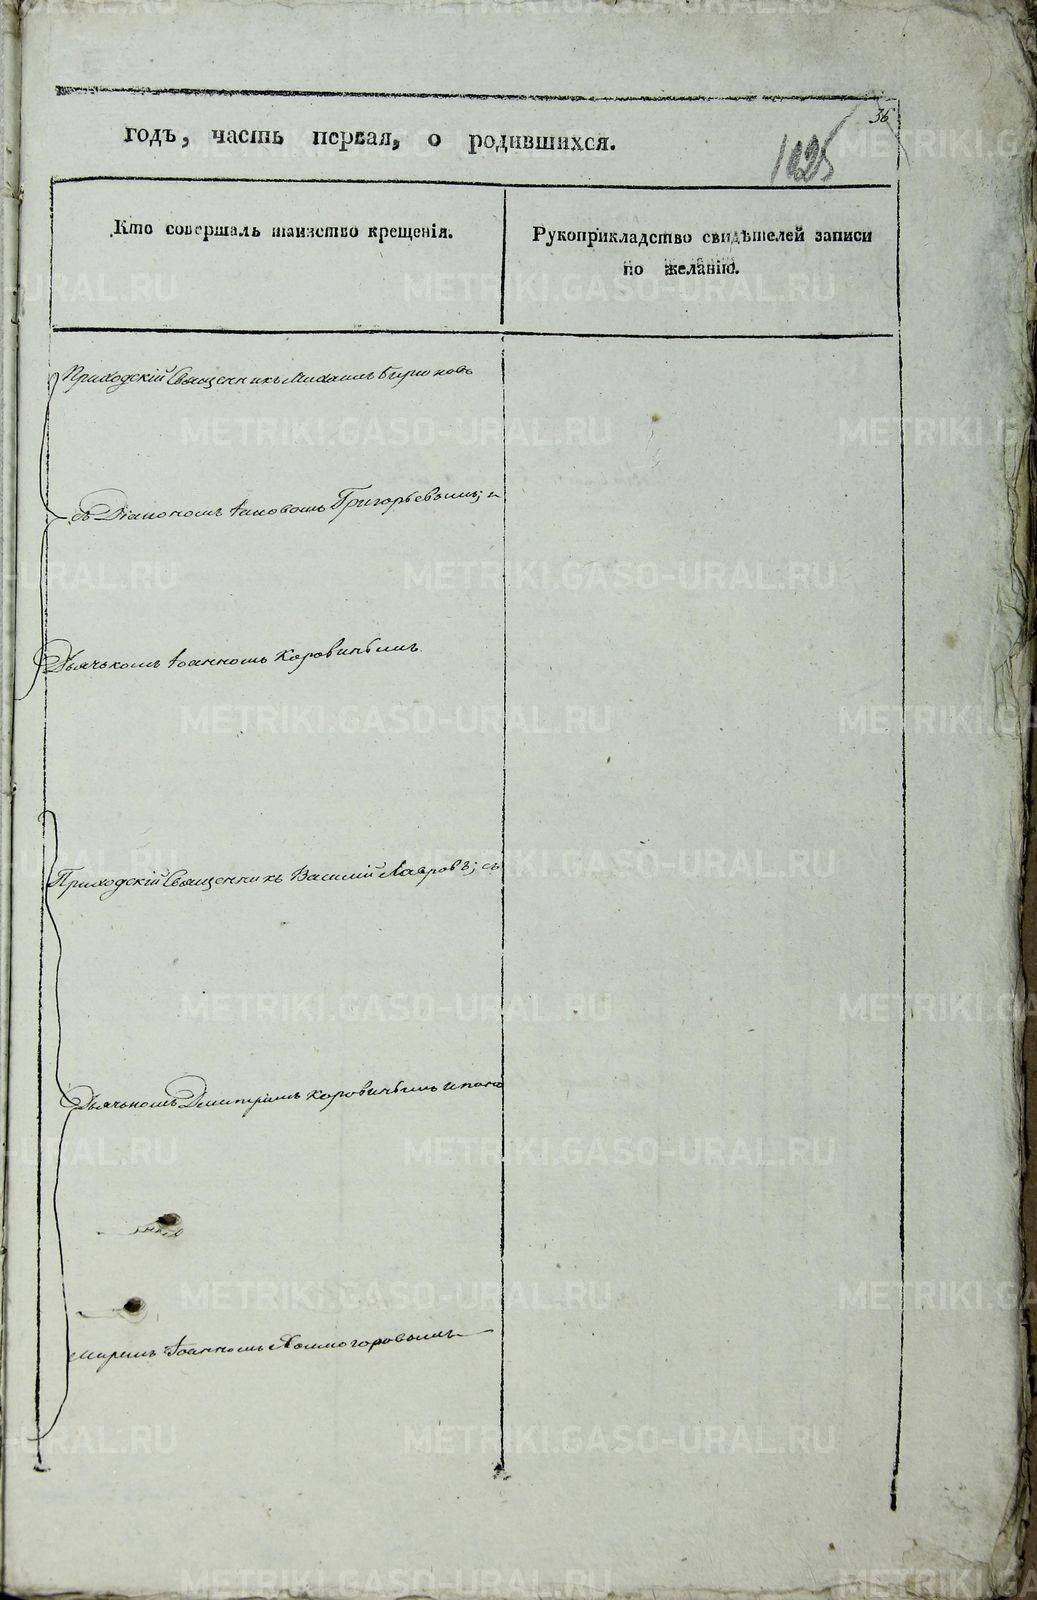 36
годъ, часть первая, о родившихся.
1025
Кто совершалъ таинство крещенія.
Рукоприкладство свидѣтелей записи
по желанію.
Приходскій Священникъ Михаилъ
съ Діакономъ Іаковомъ Григорьевымъ; и
Дьячькомъ Іоанномъ Коровинымъ
Приходскій Священникъ Василий Лавровъ; съ
Дьячькомъ Димитріемъ Коровинымъ и поно
маремъ Іоанномъ Холмогоровымъ
METRIKI.GASO-URAL.RU